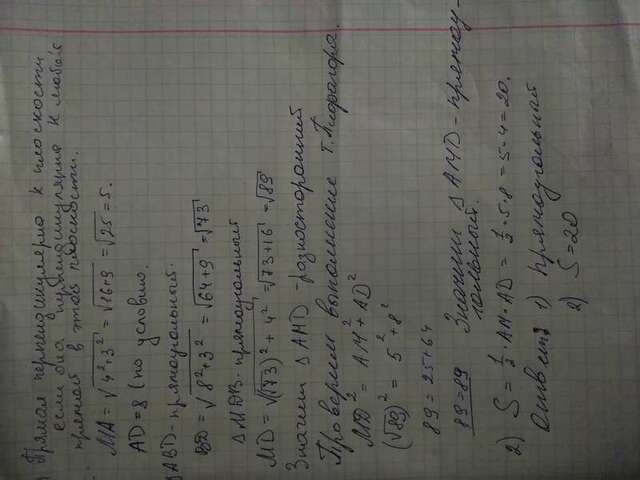 Прямая перпендикулярна к плоскости
если она перпендикулярна к любой
прямой в этой плоскости.
MA = √4²+3² = √16+9 = √25 = 5.
AD = 8 (по условию.
ABD - прямоугольный.
BD = √8²+3² = √64+9 = √73
Δ MDB - прямоугольный
MD = √(√73)²+4² = √73+16 = √89
Значит Δ AMD - разносторонний
Проверяем выполнение т. Пифагора.
MD² = AM² + AD²
(√89)² = 5² + 8²
89 = 25+64
89 = 89 Значит Δ AMD - прямоу-
гольный.
2) S = 1/2 AM · AD = 1/2 · 5 · 8 = 5 · 4 = 20.
Ответ: 1) прямоугольный
2) S = 20